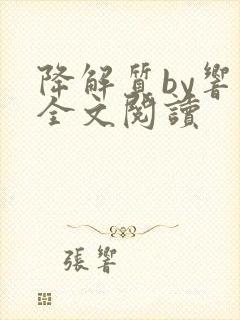 降解質by響
全文閱讀
張響